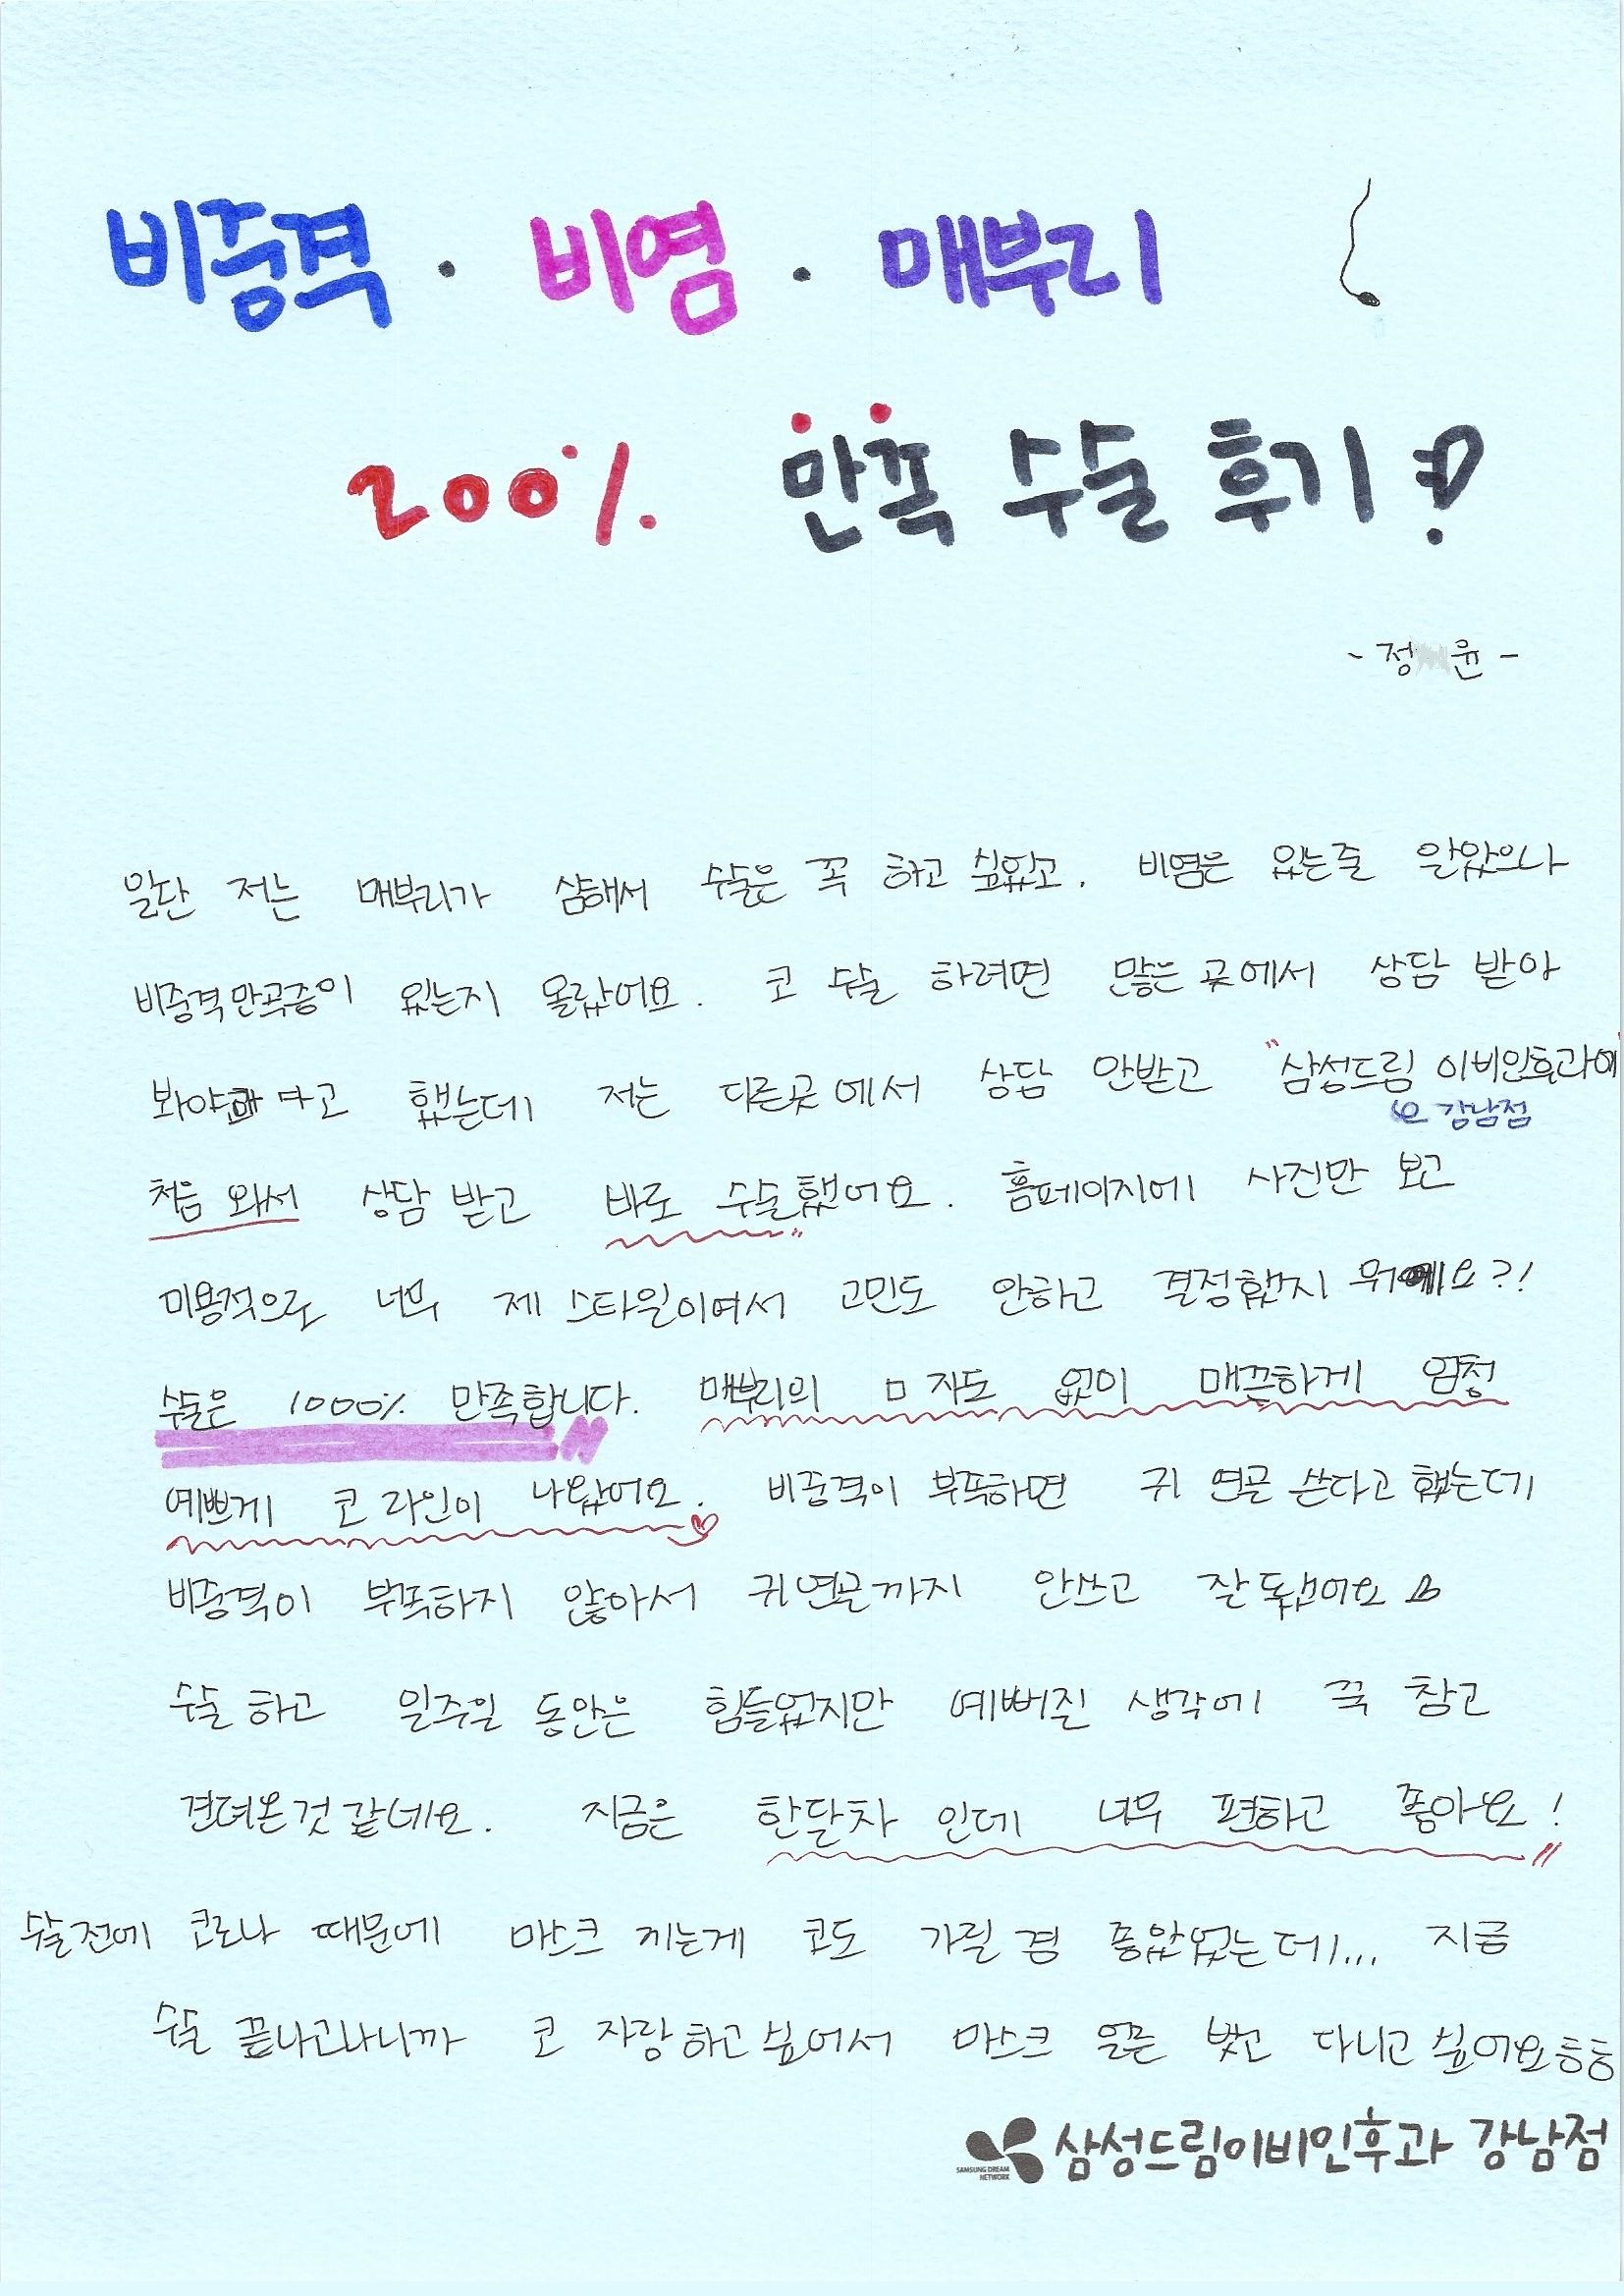 비중격 · 비염 · 매부리
200% 만족 수술 후기!
- 정 윤 -
일단 저는 매부리가 심해서 수술은 꼭 하고 싶었고. 비염은 있는줄 알았으나
비중격만곡증이 있는지 몰랐어요. 코 수술 하려면 많은 곳에서 상담 받아
봐야 다고 했는데 저는 다른곳에서 상담 안받고 "삼성드림 이비인후과에
강남점
처음 와서 상담 받고 바로 수술했어요. 홈페이지에 사진만 보고
미용적으로 너무 제 스타일이여서 고민도 안하고 결정했지 뭐예요?!
수술은 1000% 만족합니다. 매부리의 ㅁ자도 없이 매끈하게 엄청
예쁘게 코 라인이 나왔어요. 비중격이 부족하면 귀 연골 쓴다고 했는데
비중격이 부족하지 않아서 귀연골까지 안쓰고 잘 됐어요
수술 하고 일주일 동안은 힘들었지만 예뻐질 생각에 꾹 참고
견뎌온것 같네요. 지금은 한달차 인데 너무 편하고 좋아요!
수술전에 코로나 때문에 마스크 끼는게 코도 가릴 겸 좋았었는데... 지금
수술 끝나고나니까 코 자랑하고싶어서 마스크 얼른 벗고 다니고 싶어요ㅎㅎ
SAMSUNG DREAM
NETWORK
삼성드림이비인후과 강남점